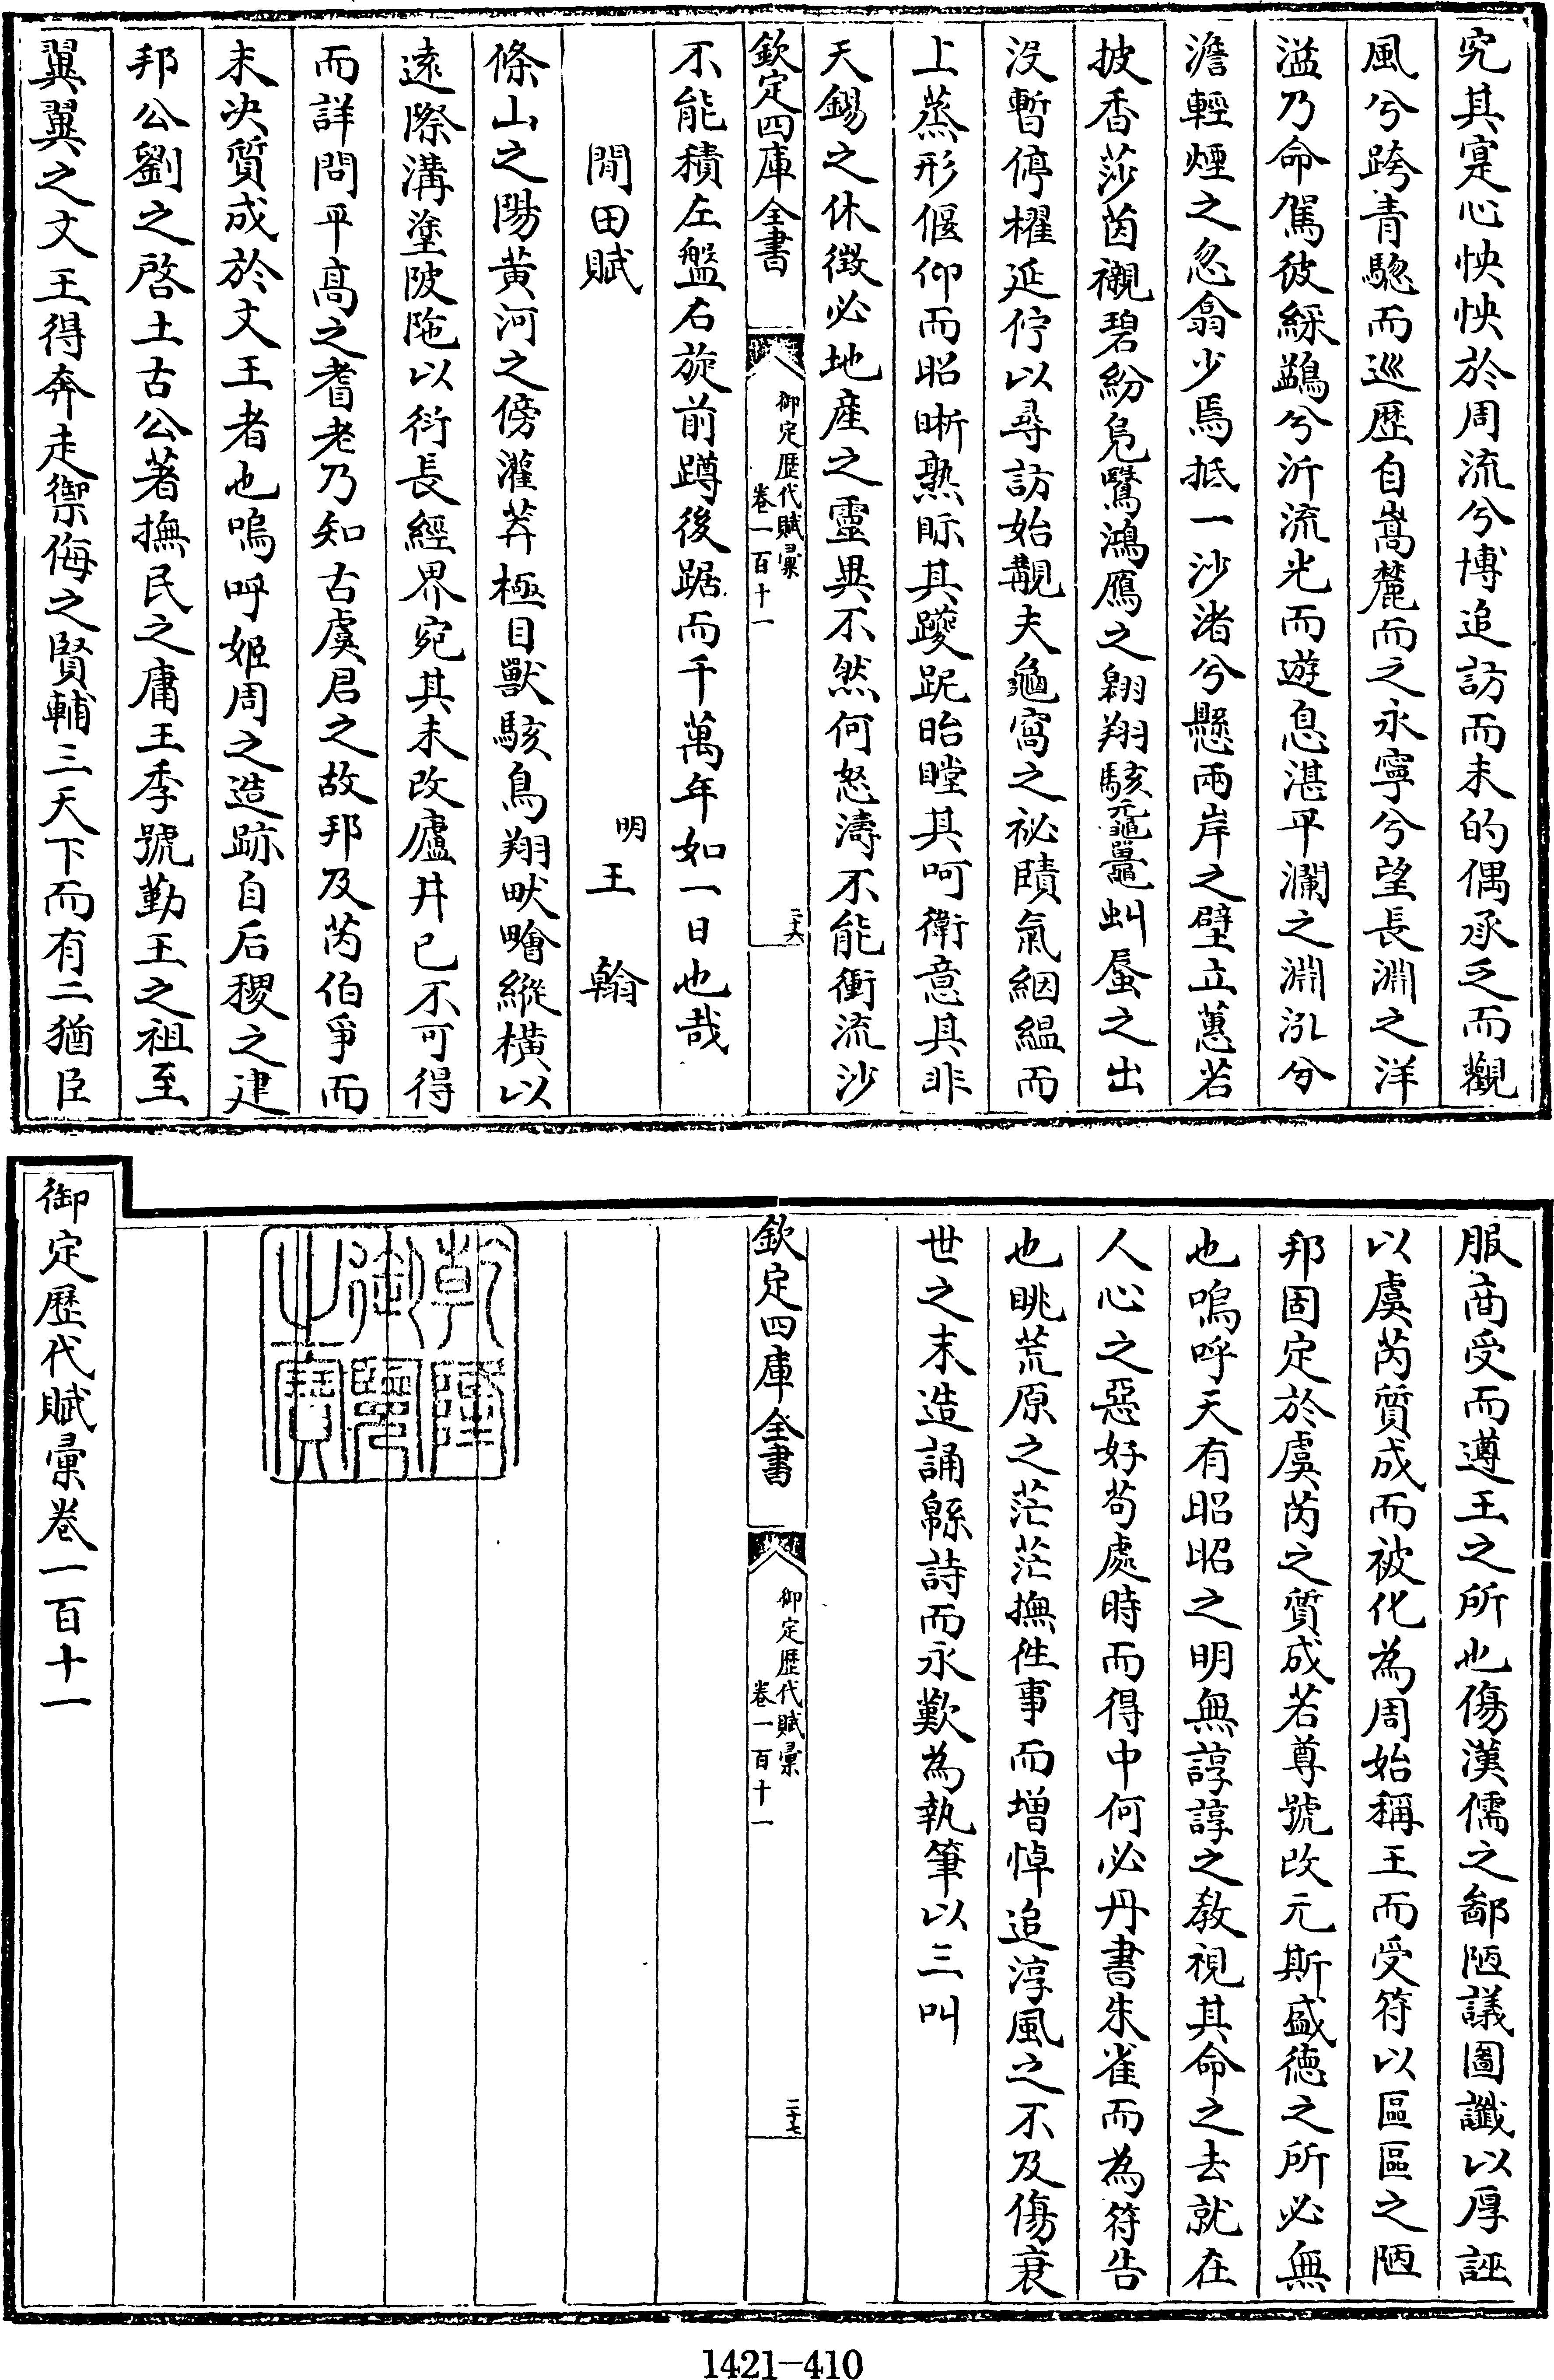 究其寔心怏怏於周流兮博追訪而未的偶承乏而觀
風兮跨青驄而巡歴自嵩麓而之永寧兮望長淵之洋
溢乃命駕彼綵鷁兮沂流光而遊息湛平瀾之淵泓兮
澹輕煙之忽翕少焉抵一沙渚兮懸兩岸之壁立蕙若
披香莎茵襯碧紛鳬鷖鴻鴈之翱翔駭黿鼉虬蜃之出
沒暫停櫂延佇以尋訪始觀夫龜窩之祕賾氣絪縕而
上蒸形偃仰而昭晣熟眎其躨跜眙瞠其呵衛意其非
天錫之休徴必地產之靈異不然何怒濤不能衝流沙
欽定四庫全書
御定歴代賦彙
卷一百十一
二十六
不能積左盤右旋前蹲後踞而千萬年如一日也哉
閒田賦
明 王翰
條山之陽黄河之傍灌莽極目獸駭鳥翔畎疄縱横以
逺際溝塗陂陁以衍長經界宛其未改廬井已不可得
而詳問平髙之耆老乃知古虞君之故邦及芮伯爭而
未决質成於文王者也嗚呼姬周之造跡自后稷之建
邦公劉之啓土古公著撫民之庸王季號勤王之祖至
翼翼之文王得奔走禦侮之賢輔三天下而有二猶臣
服商受而遵王之所也傷漢儒之鄙陋議圖讖以厚誣
以虞芮質成而被化為周始稱王而受符以區區之陋
邦固定於虞芮之質成若尊號改元斯盛徳之所必無
也嗚呼天有昭昭之明無諄諄之教視其命之去就在
人心之惡好苟處時而得中何必丹書朱雀而為符告
也眺荒原之茫茫撫徃事而增悼追淳風之不及傷衰
世之末造誦緜詩而永歎為執筆以三叫
欽定四庫全書
御定歴代賦彙
卷一百十一
二十七
乾隆御覽之寶
御定歴代賦彙卷一百十一
1421-410